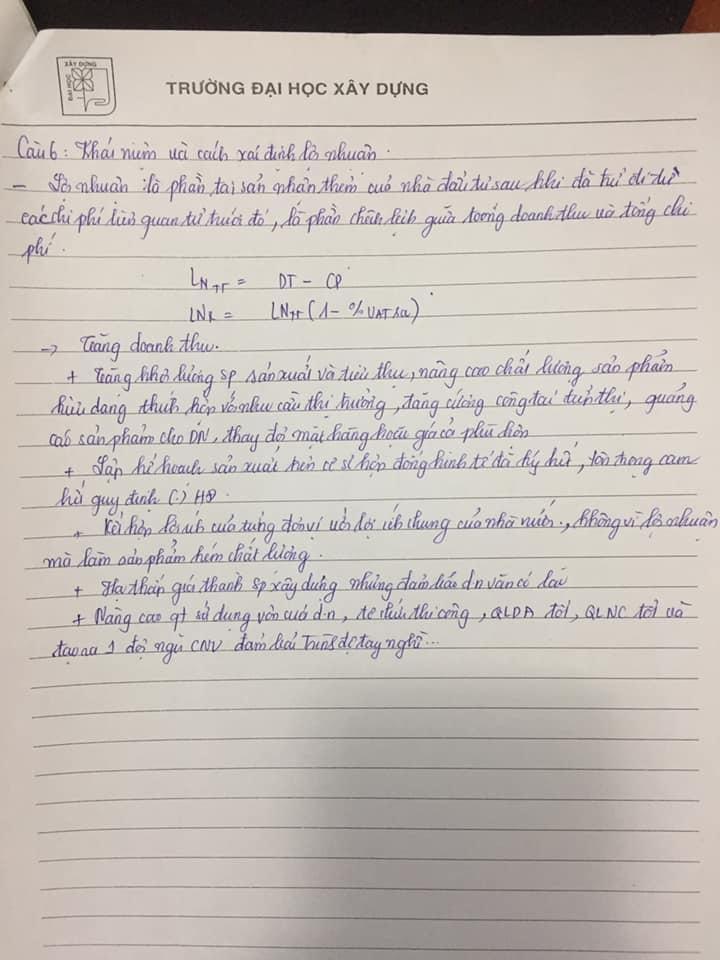 XÂY DỰNG
ĐẠI HỌC
TRƯỜNG ĐẠI HỌC XÂY DỰNG
Câu 6: Khái niệm và cách xác định lợi nhuận.
- Lợi nhuận: là phần tài sản nhận thêm của nhà đầu tư sau khi đã trừ đi từ
các chi phí liên quan từ trước đó, là phần chênh lệch giữa tổng doanh thu và tổng chi
phí.
LNTF = DT - CP
LNR = LNTF (1 - % VAT
→ Tăng doanh thu.
+ Tăng khối lượng sp sản xuất và tiêu thụ, nâng cao chất lượng sản phẩm
hữu dạng thích hợp với nhu cầu thị trường, tăng cường công tác tiếp thị, quảng
cáo sản phẩm cho DN, thay đổi mặt hàng hoặc giá cả phù hợp
+ Lập kế hoạch sản xuất trên cơ sở hợp đồng kinh tế đã ký kết, tôn trọng cam
kết quy định (.) HĐ.
+ Kết hợp lợi ích của từng đơn vị với lợi ích chung của nhà nước., không vì lợi nhuận
mà làm sản phẩm kém chất lượng.
+ Hạ thấp giá thành sp xây dựng nhưng đảm bảo d.n vẫn có lãi
+ Nâng cao qt sử dụng vốn của d.n, thi công, QLDA tốt, QLNC tốt và
tạo ra 1 đội ngũ CNV đảm bảo trình độ tay nghề...